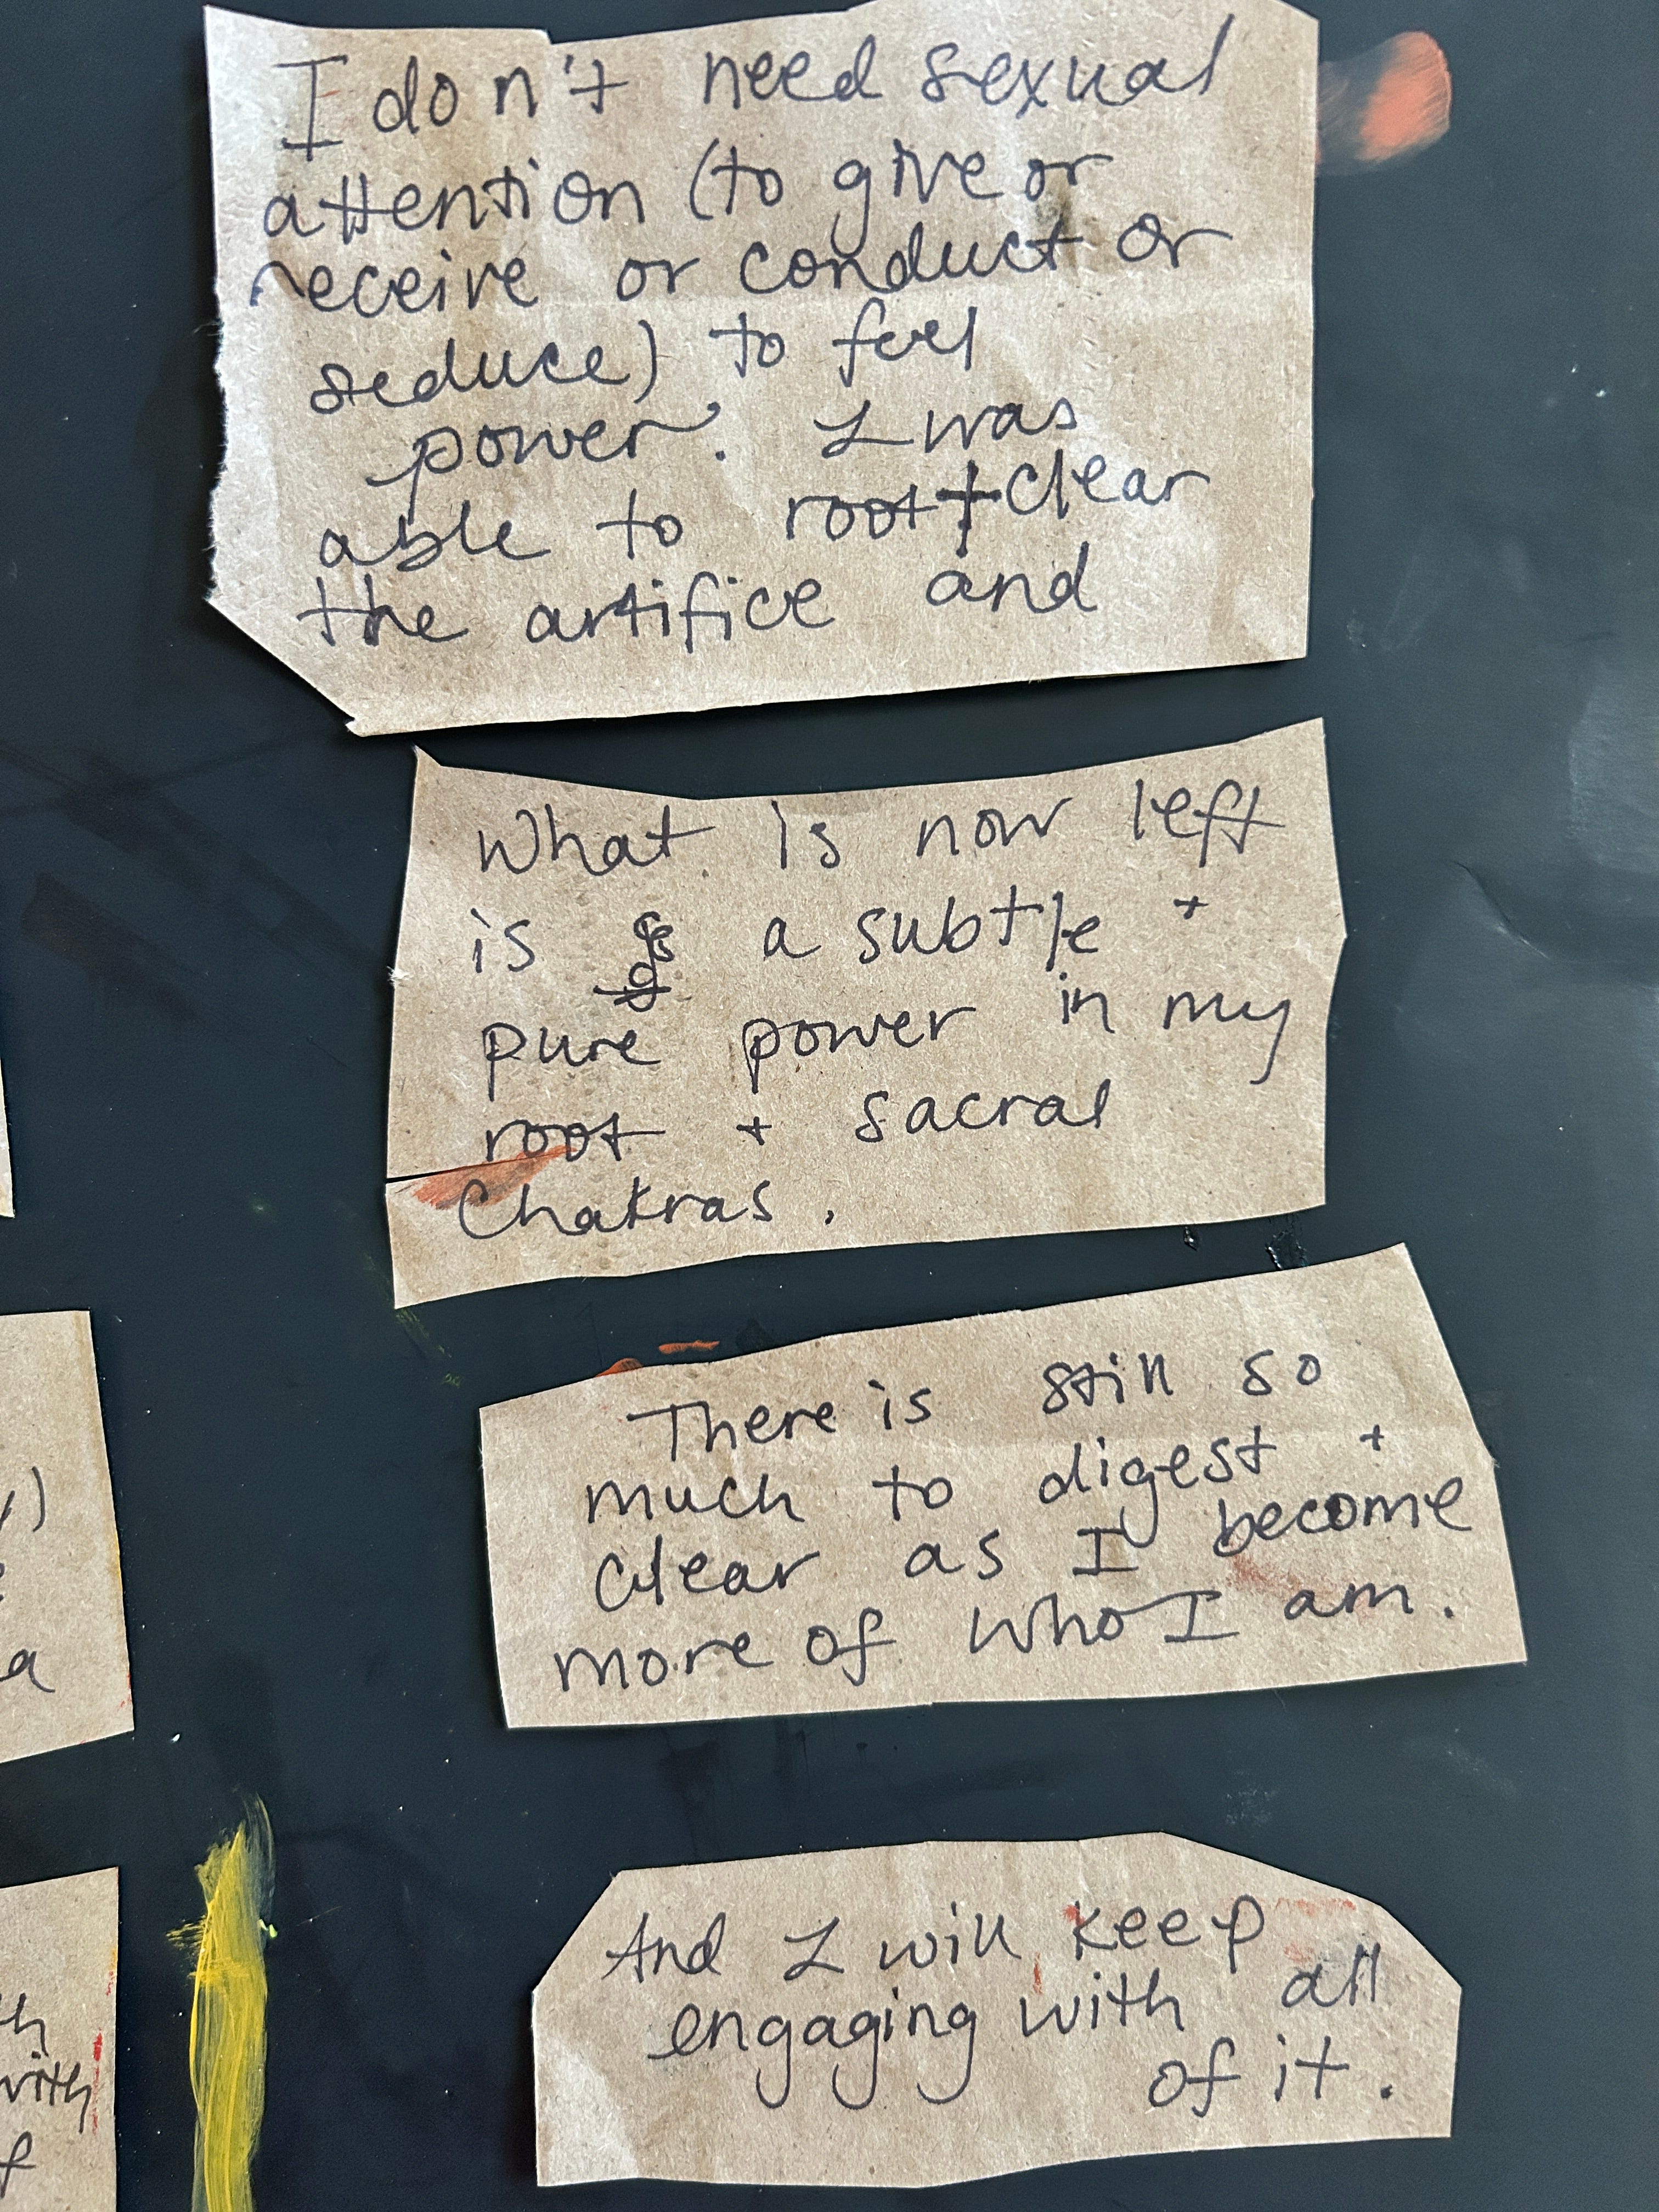 I don't need sexual
attention (to give or
receive or conduct or
seduce) to feel
power. I was
able to root + clear
the artifice and
What is now left
is a subtle +
pure power in my
root + sacral
chakras.
There is still so
much to digest +
clear as I become
more of who I am.
And I will keep
engaging with all
of it.
y)
a
th
with
f